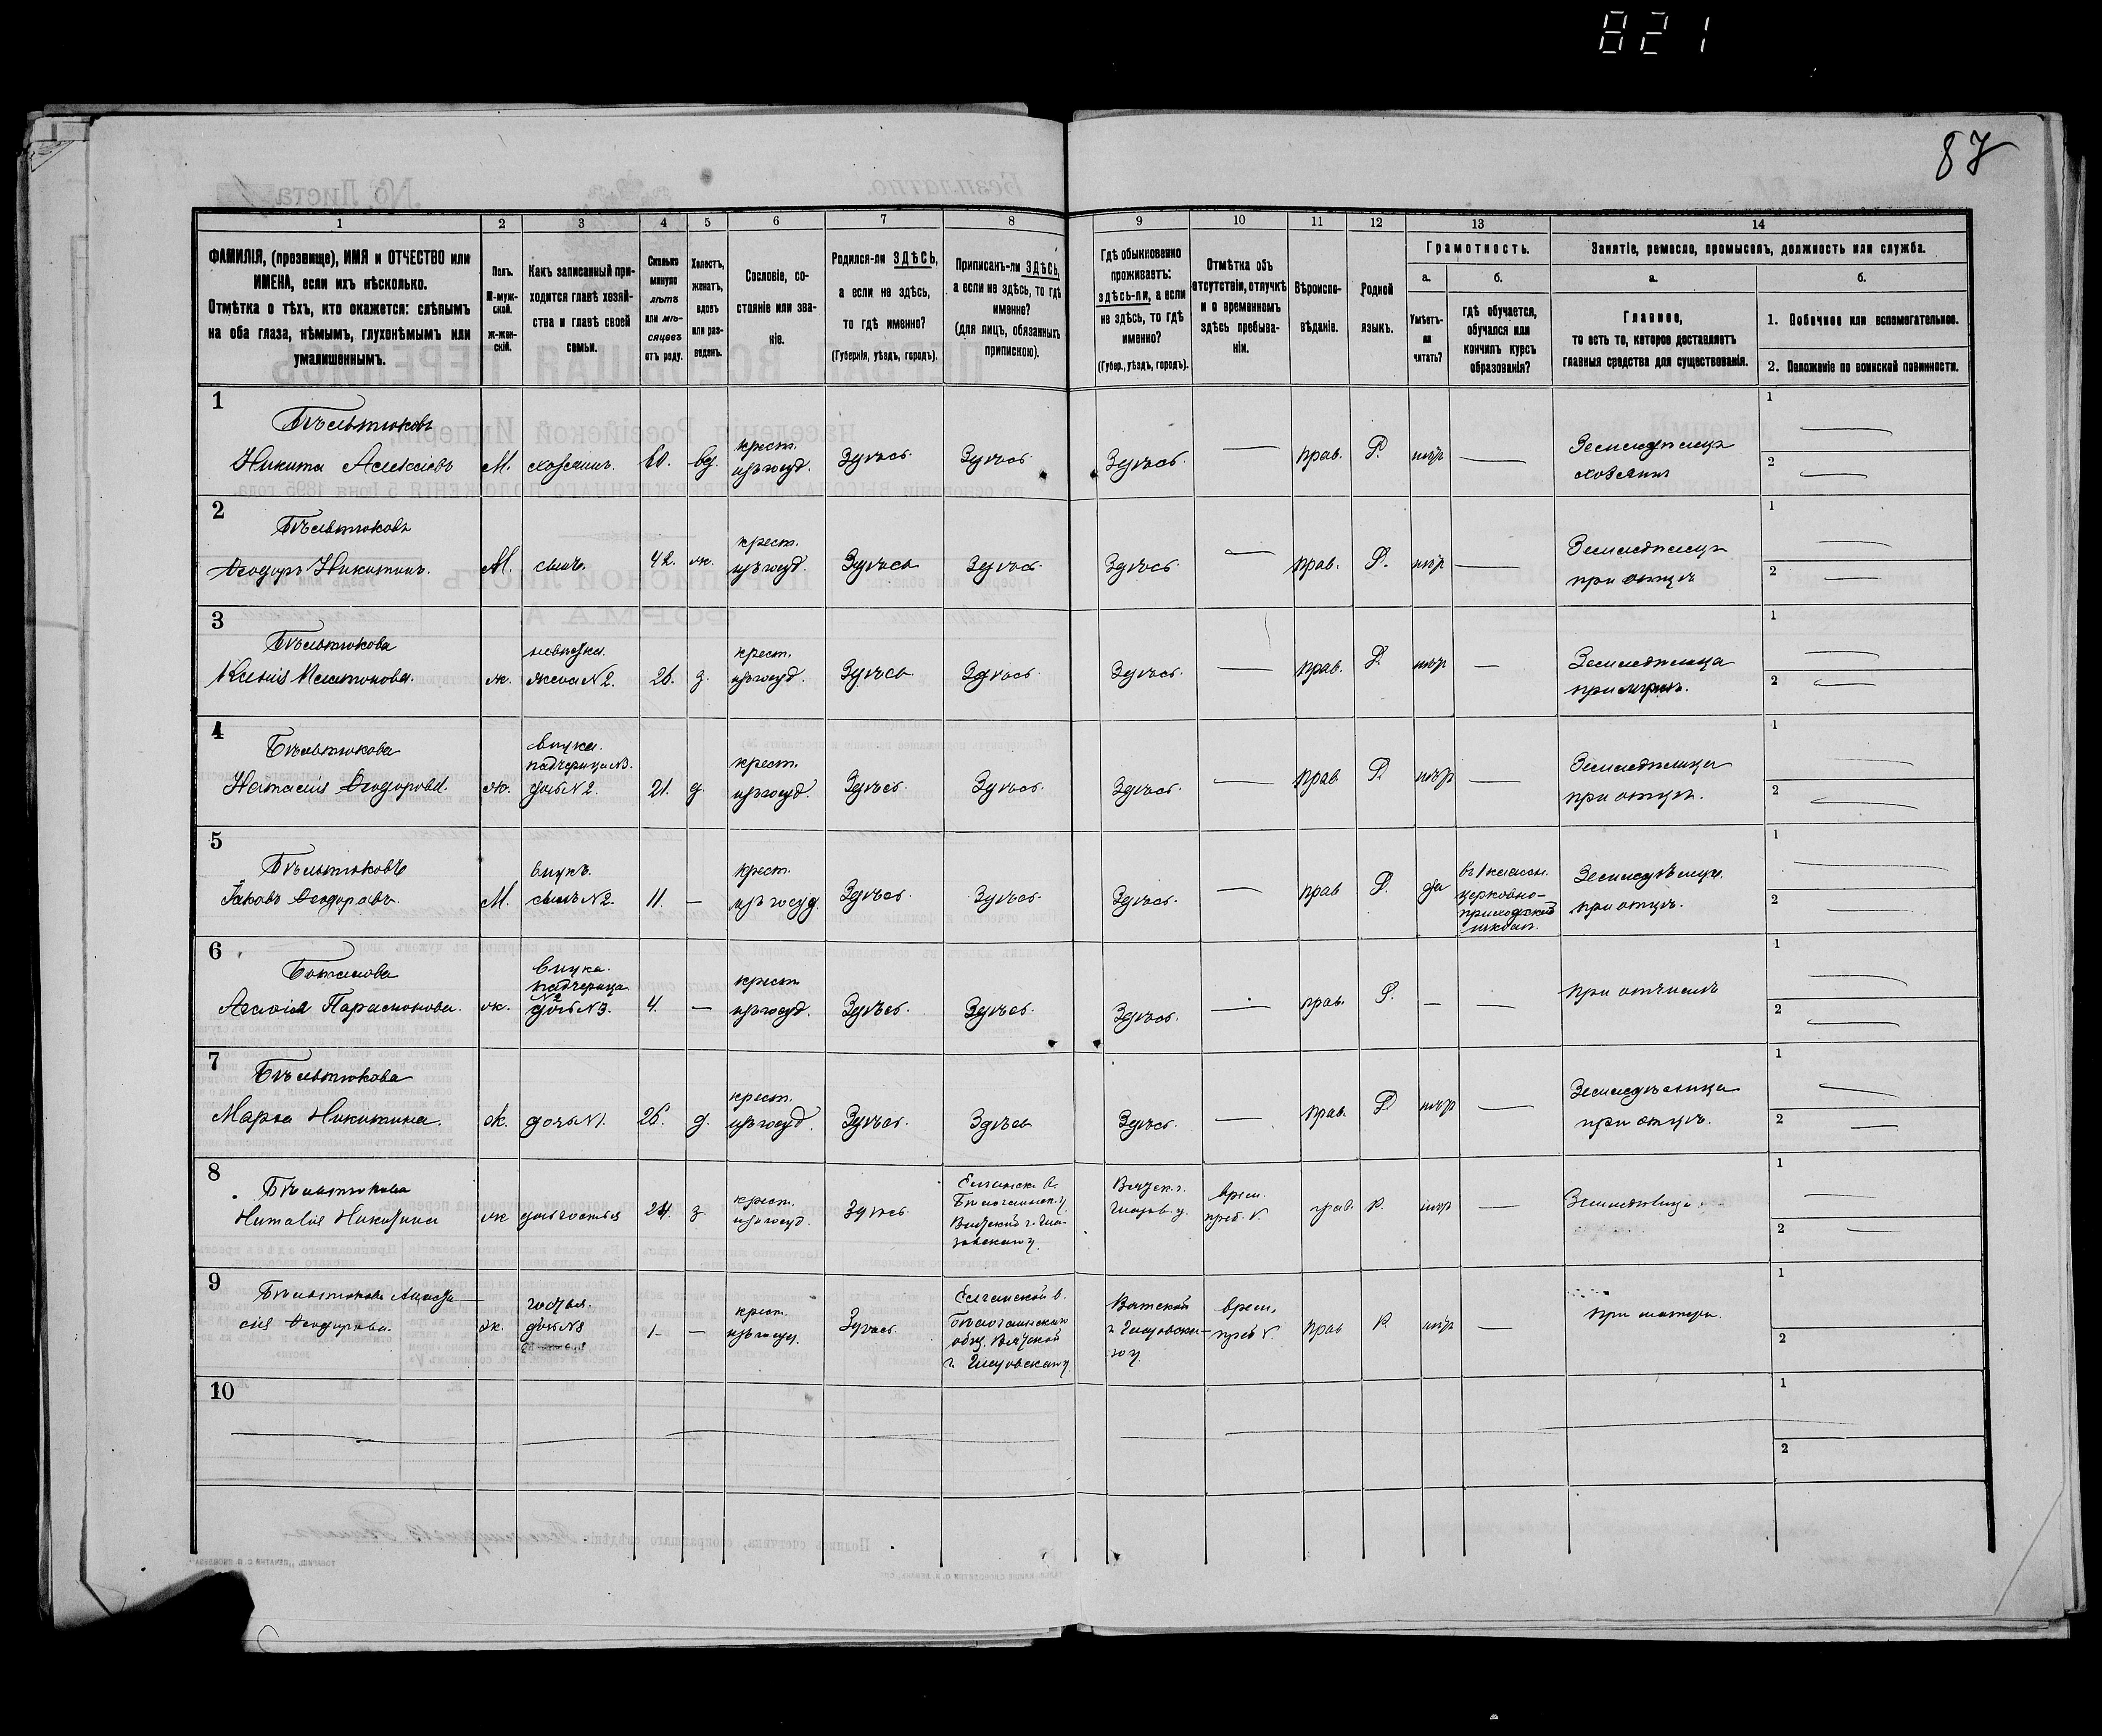 821
87
1 2 3 4 5 6 7 8 9 10 11 12 13 14
ФАМИЛІЯ, (прозвище), ИМЯ и ОТЧЕСТВО или
ИМЕНА, если ихъ нѣсколько.
Отмѣтка о тѣхъ, кто окажется: слѣпымъ
на оба глаза, нѣмымъ, глухонѣмымъ или
умалишеннымъ.
Полъ.
М-муж-
ской.
ж-жен-
скій.
Какъ записанный при-
ходится главѣ хозяй-
ства и главѣ своей
семьи.
Сколько
минуло
лѣтъ
или мѣ-
сяцевъ
отъ роду.
Холостъ,
женатъ,
вдовъ
или раз-
веденъ.
Сословіе, со-
стояніе или зва-
ніе.
Родился-ли ЗДѢСЬ,
а если не здѣсь,
то гдѣ именно?
(Губернія, уѣздъ, городъ).
Приписанъ-ли ЗДѢСЬ,
а если не здѣсь, то гдѣ
именно?
(для лицъ, обязанныхъ
припискою).
Гдѣ обыкновенно
проживаетъ:
здѣсь-ли, а если
не здѣсь, то гдѣ
именно?
(Губер., уѣздъ, городъ).
Отмѣтка объ
отсутствіи, отлучкѣ
и о временномъ
здѣсь пребыва-
ніи.
Вѣроиспо-
вѣданіе.
Родной
языкъ.
Грамотность.
а.
Умѣетъ-
ли
читать?
б.
гдѣ обучается,
обучался или
кончилъ курсъ
образованія?
Занятіе, ремесло, промыселъ, должность или служба.
а.
Главное,
то есть то, которое доставляетъ
главныя средства для существованія.
б.
1. Побочное или вспомогательное.
2. Положеніе по воинской повинности.
1
Бѣльтюковъ
Никита Алексіевъ М. хозяинъ. 60. вд. крест. изъ госуд. Здѣсь Здѣсь Здѣсь. — прав. Р. нѣтъ — Земледѣлецъ
хозяинъ
1 —
2 —
2
Бѣльтюковъ
Ѳеодоръ Никитинъ. М. сынъ. 42. ж. крест. изъ госуд. Здѣсь Здѣсь. Здѣсь. — прав. Р. нѣтъ — Земледѣлецъ
при отцѣ
1
2 —
3
Бѣльтюкова
Ксенія Платонова. ж. невѣстка.
жена №2. 26. з. крест. изъ госуд. Здѣсь Здѣсь. Здѣсь. — прав. Р. нѣтъ — Земледѣлица
при мужѣ.
1 —
2 —
4
Бѣльтюкова
Наталія Ѳеодорова. ж. внука.
падчерица №3.
дочь №2. 21. д. крест. изъ госуд. Здѣсь. Здѣсь. Здѣсь. — прав Р. нѣтъ — Земледѣлица
при отцѣ.
1 —
2 —
5
Бѣльтюковъ
Іаковъ Ѳеодоровъ. М. внукъ.
сынъ №2. 11. — крест. изъ госуд. Здѣсь. Здѣсь. Здѣсь. — прав Р. да въ 1 классѣ.
церковно-
приходской
школѣ. Земледѣлецъ
при отцѣ.
1 —
2 —
6
Параснонова. ж. внука.
падчерица
№2
дочь №3. 4. — крест. изъ госуд. Здѣсь. Здѣсь. Здѣсь. — прав. Р. — — при отчимѣ
1 —
2 —
7
Бѣльтюкова
Марѳа Никитина. ж. дочь №1. 26. д. крест. изъ госуд. Здѣсь. Здѣсь Здѣсь. — прав. Р. нѣтъ — Земледѣлица
при отцѣ.
1 —
2 —
8
Бѣльтюкова
Наталія Никитина ж дочь гостья 24. з. крест. изъ госуд. Здѣсь. Вятской г. Гла-
зовскаго у. Вятск. г.
Глазов. у. врем.
преб. V. прав. Р. нѣтъ — Земледѣлица.
1 —
2 —
9
Бѣльтюкова Анаста-
сія Ѳеодорова. ж. гостья.
дочь №8 1- — крест. изъ госуд. Здѣсь. общ. Вятской
г. Глазовскаго у. Вятской
г. Глазовска-
го у. врем.
преб V. прав Р. нѣтъ — при матери.
1
2
10
1
2